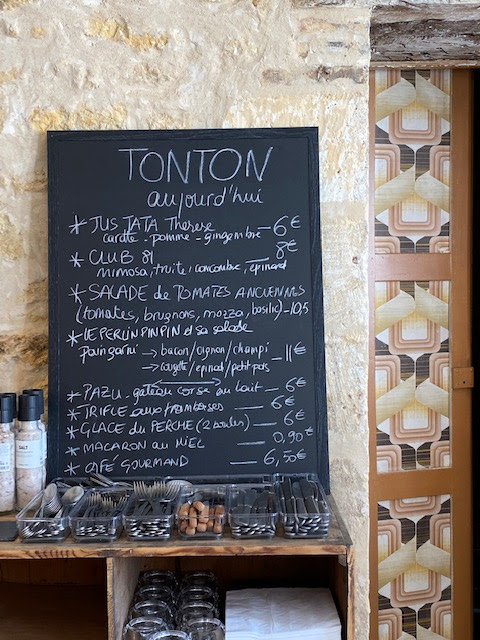 TONTON
aujourd'hui
* JUS TATA Thérèse — 6€
carotte - pomme - gingembre
* CLUB 81 — 8€
mimosa, truite, concombre, épinard
* SALADE de TOMATES ANCIENNES
(tomates, brugnons, mozza, basilic) - 10,5
* LE PERLINPINPIN et sa salade
pain garni → bacon/oignon/champi — 11€
→ courgette/épinard/petit pois
* PAZU - gâteau corse au lait — 6€
* TRIFLE aux framboises — 6€
* GLACE du PERCHE (2 boules) — 6€
* MACARON au MIEL — 0,90€
* CAFÉ GOURMAND — 6,50€
SALT